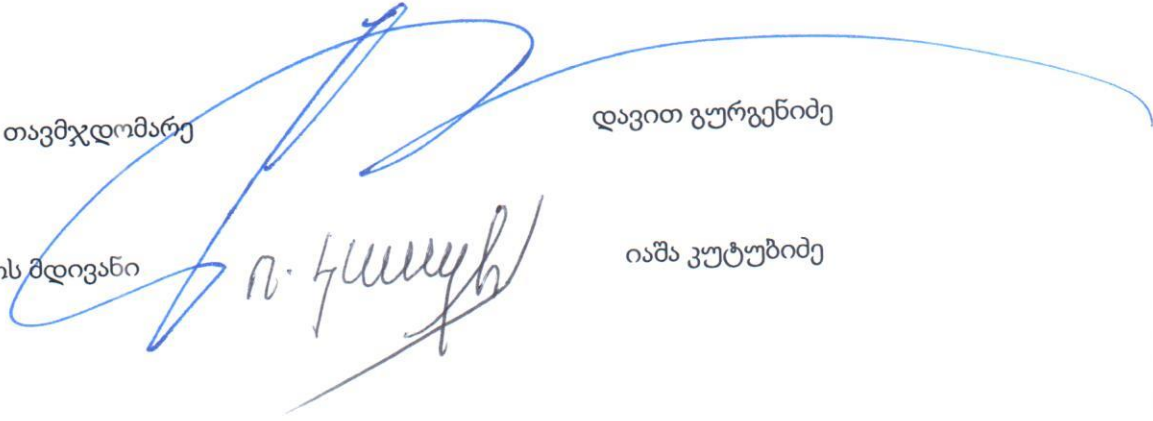 თავმჯდომარე დავით გურგენიძე
ის მდივანი იაშა კუტუბიძე